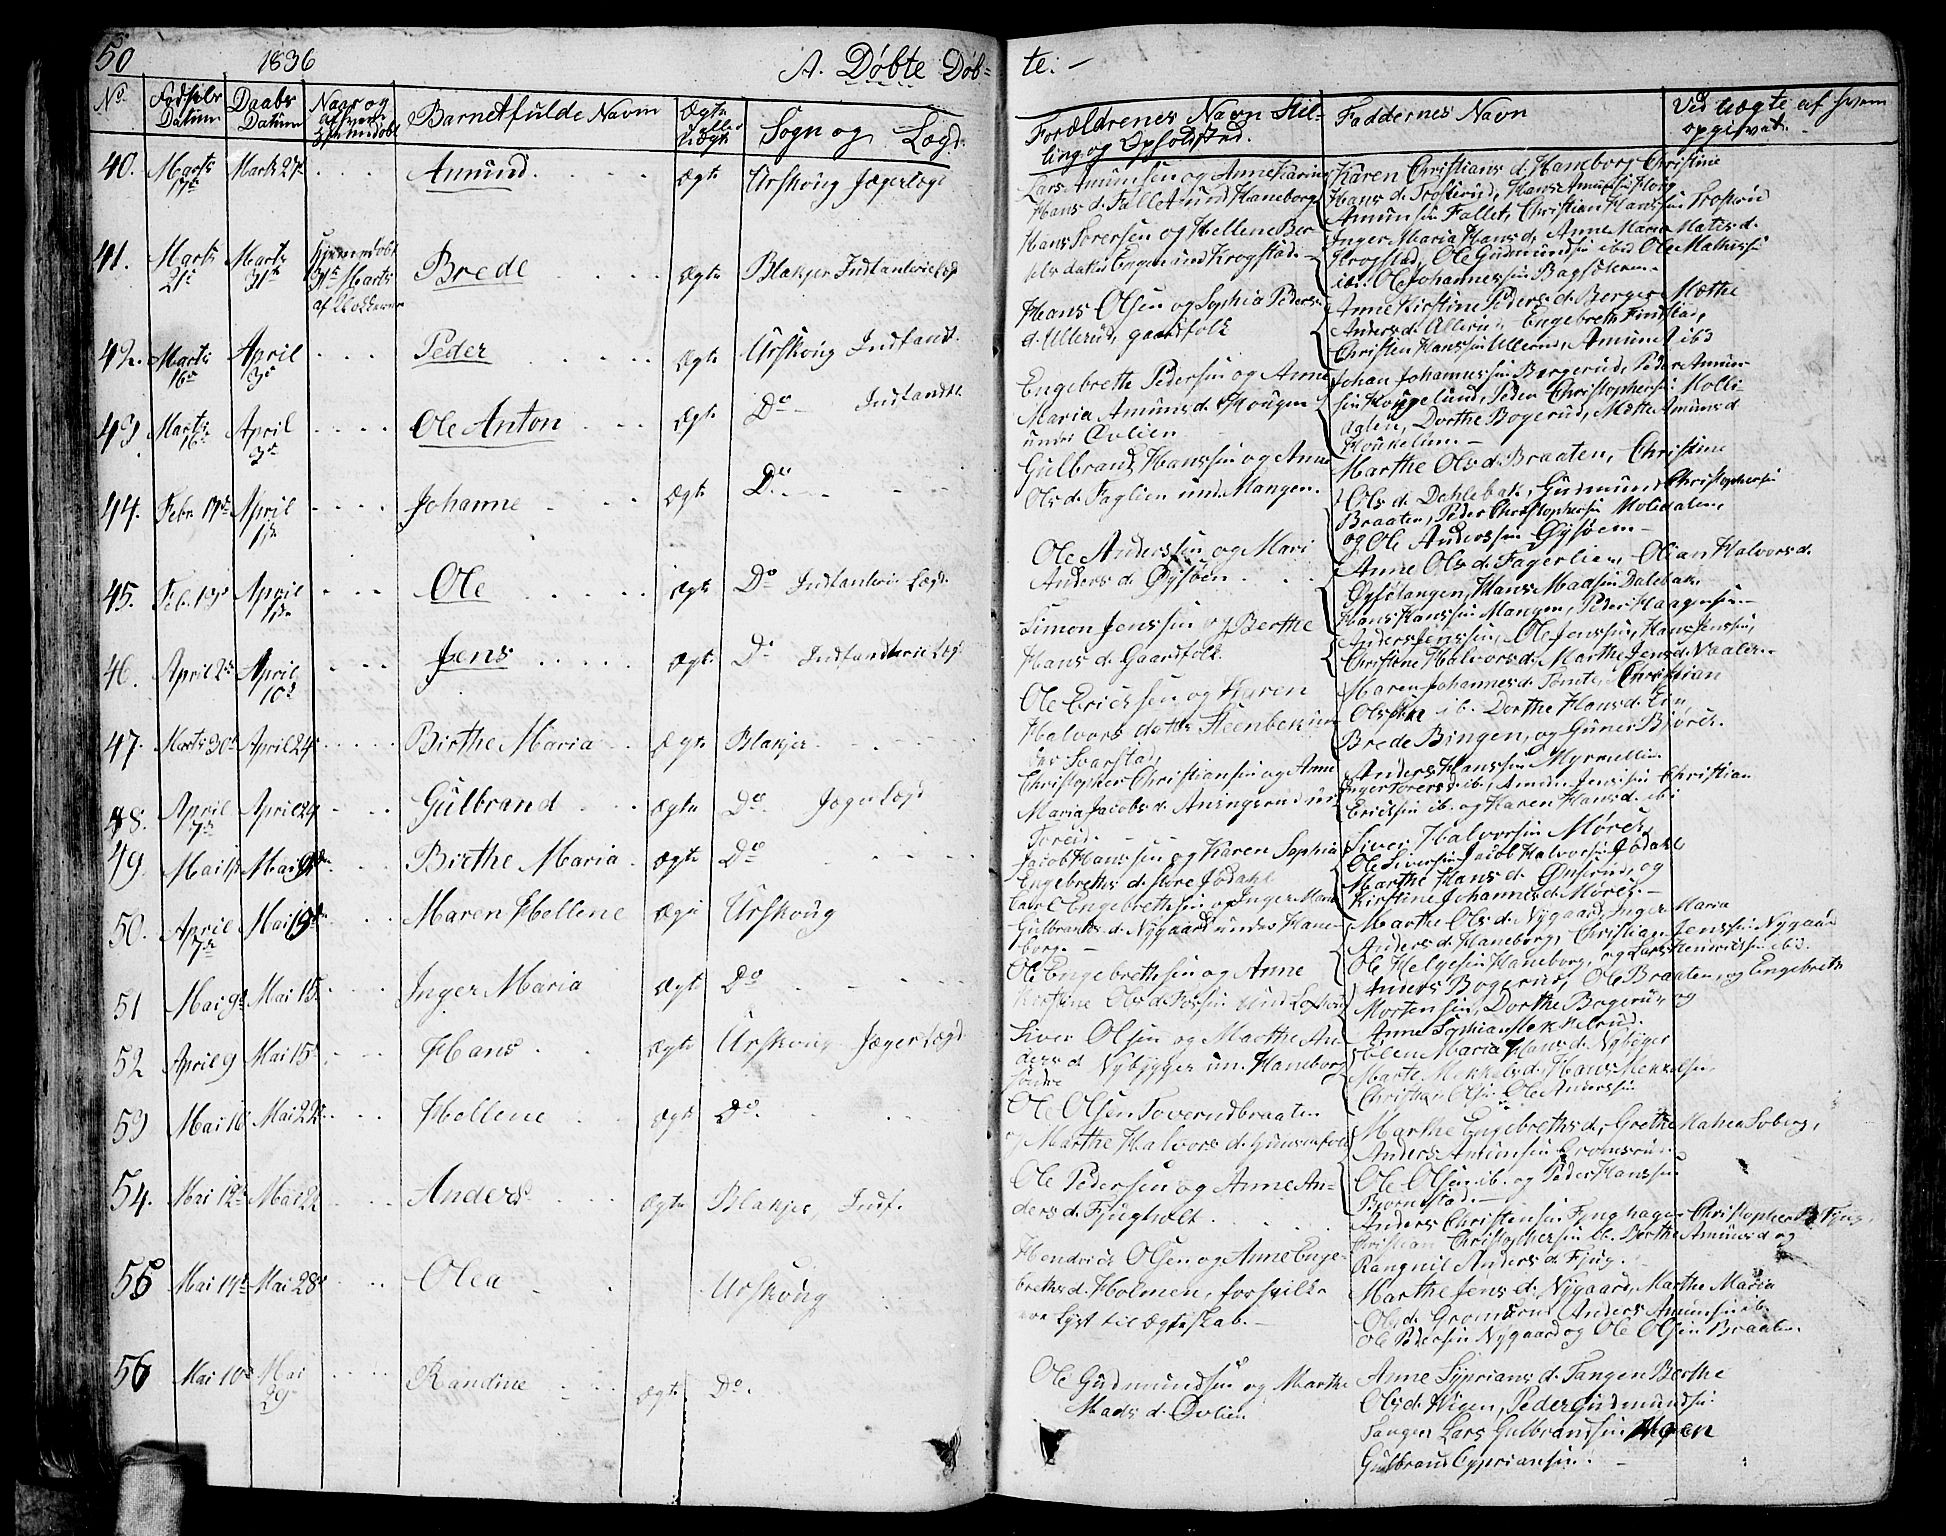 50 1836 A. Døbte Døb= te. -
No. Fødsels Datum Daabs Datum Naar og af hvem hjemmedøbt Barnet fulde Navn Ægte eller uægte Sogn og Lægd. Forældrenes Navn Stil- ling og Opholdsted. Faddernes Navn Ved uægte af hvem opgivet.
40. Marts 17de Marts 27 Amund Ægte Urskoug Jægerlægd
Lars Amunsen og Anne Karine
Hans d. Fallet und Haneborg
Karen Christians d. Haneborg Christine
Hans d. Troserud, Hans Amunsen
Amunsen Fallet, Christian Hanssen
41. Marts 21de Marts 31te Hjemmedøbt 31te Marts af Klokkeren Brede Ægte Blakjer Infanterielægd
Hans Torersen og Hellene Bre-
Krogstad.
Inger Maria Hans d. Anne Maria Mates d.
Krogstad, Ole Gudmunsen ibid Ole Mathissen
ib. Ole Johannessen Bagsøteren.
42. Marts 16de April 3de Peder Ægte Urskoug Infant.
Hans Olsen og Sophia Peders
d. Ullerud, gaardfolk
Anne Kirstine Peders d. Berger Mæthe
Anders d. Ullerud Engebreth
Christen Hanssen Ullerud, Amund ibd
43. Marts 16de April 3de Ole Anton Ægte Do Infantr.
Engebreth Pedersen og Anne
Maria Amunds d. Hougen
under Øvlien
Johan Johannessen Bergerud, Peder Amun-
sen Haugelund, Peder Christophersen
Dorthe Bogerud, Mæthe Amunds d
44. Febr. 19de April 1ste Johanne Ægte Do
Gulbrand Hanssen og Anne
Ols d. Faglien und Mangen.
Marthe Ols d. Braaten, Christine
Ols d. Dahlebak, Gudmund Christophersen
Braaten, Peder Christophersen Moledalen,
og Ole Anderssen Gysøen
45. Feb. 13de April 1ste Ole Ægte Do Infanterie Lægd.
Ole Anderssen og Mari
Anders d. Øysøen
Anne Ols d. Fagerlien, Olian Halvors d.
Hans Madsen Dalebak
Hans Hanssen Mangen, Peder Haagensen
46. April 2de April 10de Jens Ægte Do Infanterie Læg.
Simon Jenssen og Berthe
Hans d. Gaardfolk
Anders Jenssen, Ole Jenssen, Hans Jenssen,
Christine Halvors d. Marthe Jens d. Naalen
47. Marts 30te April 24de Birthe Maria Ægte Blakjer
Ole Ericksen og Karen
Halvors datter Steenbek un
der Svarstad,
Maren Johannes d. Tomte, Christian
Olsen ib. Dorthe Hans d. Ein,
Brede Bingen, og Guner Bjørek.
48. April 7de April 29 Gulbrand Ægte Do Jægerlægd
Christopher Christiansen og Anne
Maria Jacobs d. Aningsrud un
Toreid.
Anders Hanssen Myrmellin
Inger Torers d. ib., Amund Jenssen Christian
Ericksen ib. og Karen Hans d. ib:
49. Mai 1ste Mai 9de Birthe Maria Ægte Do
Jacob Hanssen og Karen Sophia
Engebreths d. store Jødahl
Siver Halvorsen Mørek
Ole Siversen, Jacob Halvorsen Jødahl,
Marthe Hans d. Ønserud, og
Kirstine Johannes d. Mørek.
50. April 7de Mai 19de Maren Hellene Ægte Urskoug
Carl Engebrethsen og Inger Maria
Gulbrands d. Nygaard under Hane-
borg.
Marthe Ols d. Nygaard, Inger Maria
Anders d. Haneborg, Christian Jenssen Nygaard
Ole Helgesen Haneborg, og Lars Hendriksen ibid.
51 Mai 9de Mai 15. Inger Maria Ægte Do
Ole Engebrethsen og Anne
Kirstine Ols d.
Anders Bogerud, Ole Braaten, og Engebreth
Mortensen, Dorthe Bogerud og
Anne Sophia Mekkelrud.
52 April 9 Mai 15de Hans Ægte Urskoug Jægerlægd
Siver Olsen og Marthe An-
ders d Nybygger un. Haneborg
søndre
Maria Hans d. Nybøger
Marte Mekkels d. Hans Mekkelsen,
Christian Olsen Ole Anderssen
53 Mai 10 Mai 22de Hellene Ægte Do.
Ole Olsen Toverudbraaten
og Marthe Halvors d.
Marthe Engebreths d. Grethe Mathea Soberg,
Anders Amunsen
Ole Olsen ib. og Peder Hanssen
Bjørnestad.
54. Mai 12de Mai 22 Anders Ægte Blakjer, Inf.
Ole Pedersen og Anne An-
ders d. Fjugholt.
Anders Christensen Fjughagen Christopher Fjug,
Christian Christophersen ib. Berthe Amunds d og
Rangnil Anders d Fjug.
55 Mai 14de Mai 28de Olea Urskoug
Hendrick Olsen og Anne Enge-
breths d. Holmen, for hvilke
lyst til Ægteskab.
Marthe Jens d. Nygaard, Marthe Maria
Ols d. Anders Amunsen ib.
Ole Pedersen Nygaard og Ole Olsen Braaten.
56 Mai 10de Mai 29de Randine Ægte Do.
Ole Gudmundsen og Marthe
Mads d. Øvlien
Anne Syprians d. Tangen Berthe
Ols d. Wigen, Peder Gudmundsen
Tangen Lars Gulbrandsen
Gulbrand Cypriansen.